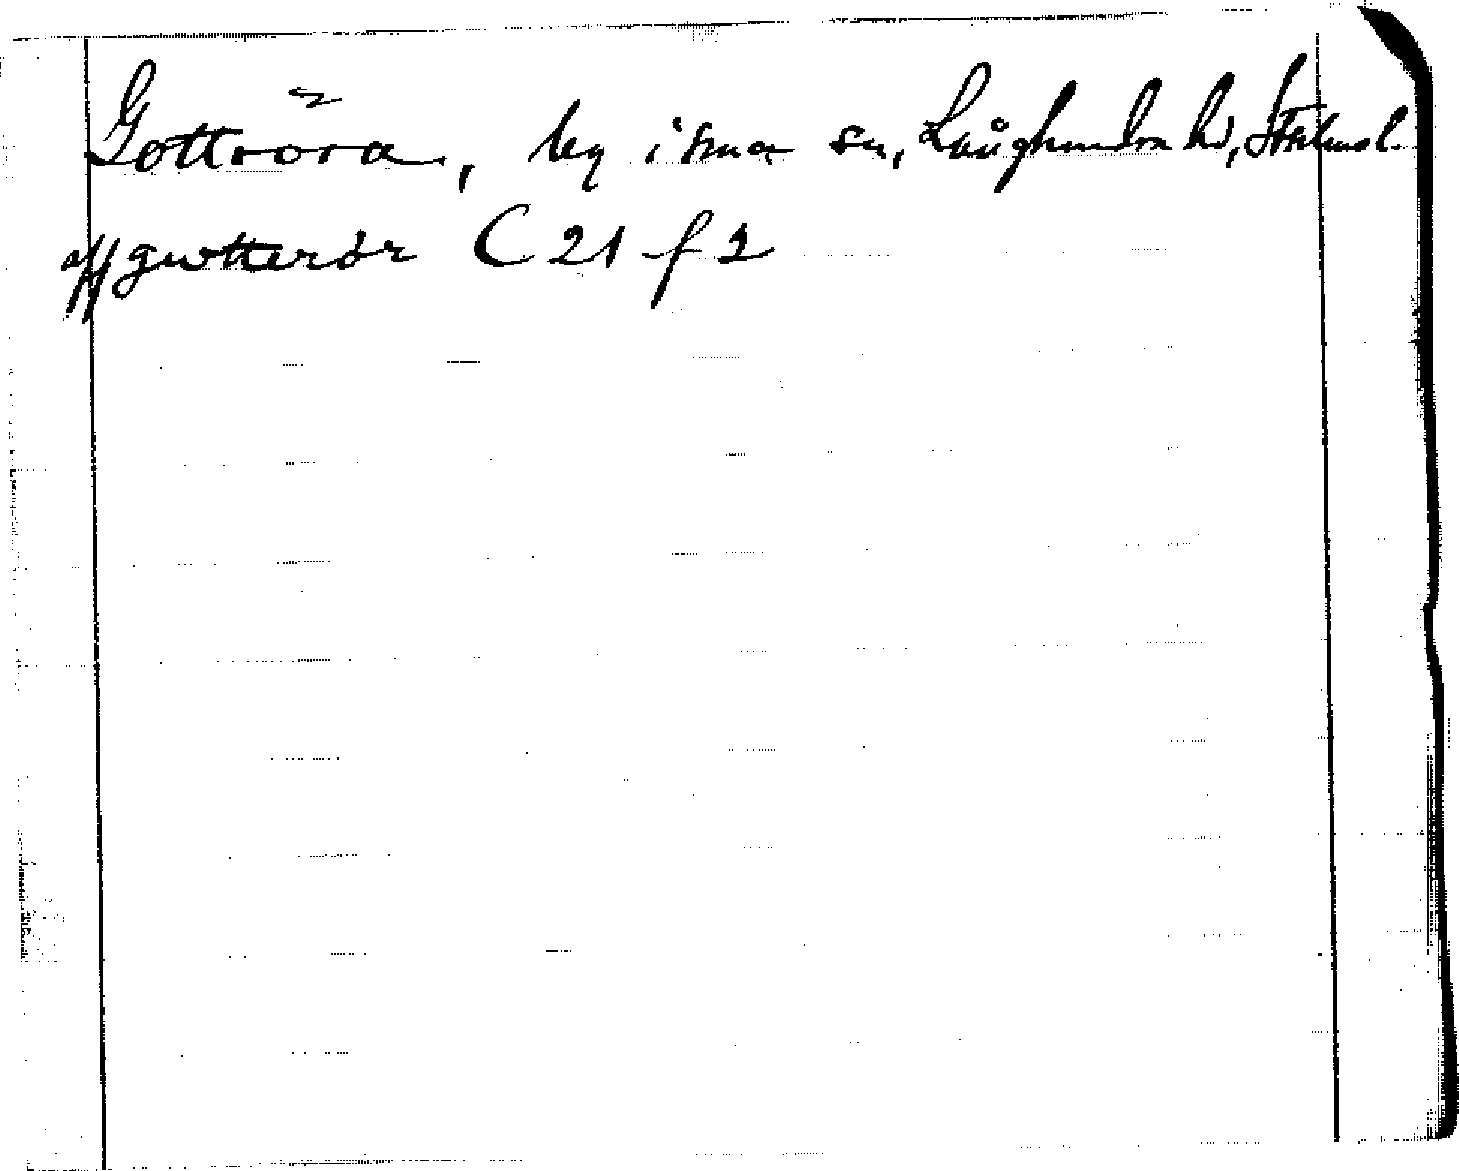 Gottröra, by i sma sn, Långhundra hd, Sthlmsl.
aff gwtterör C 21 f 2